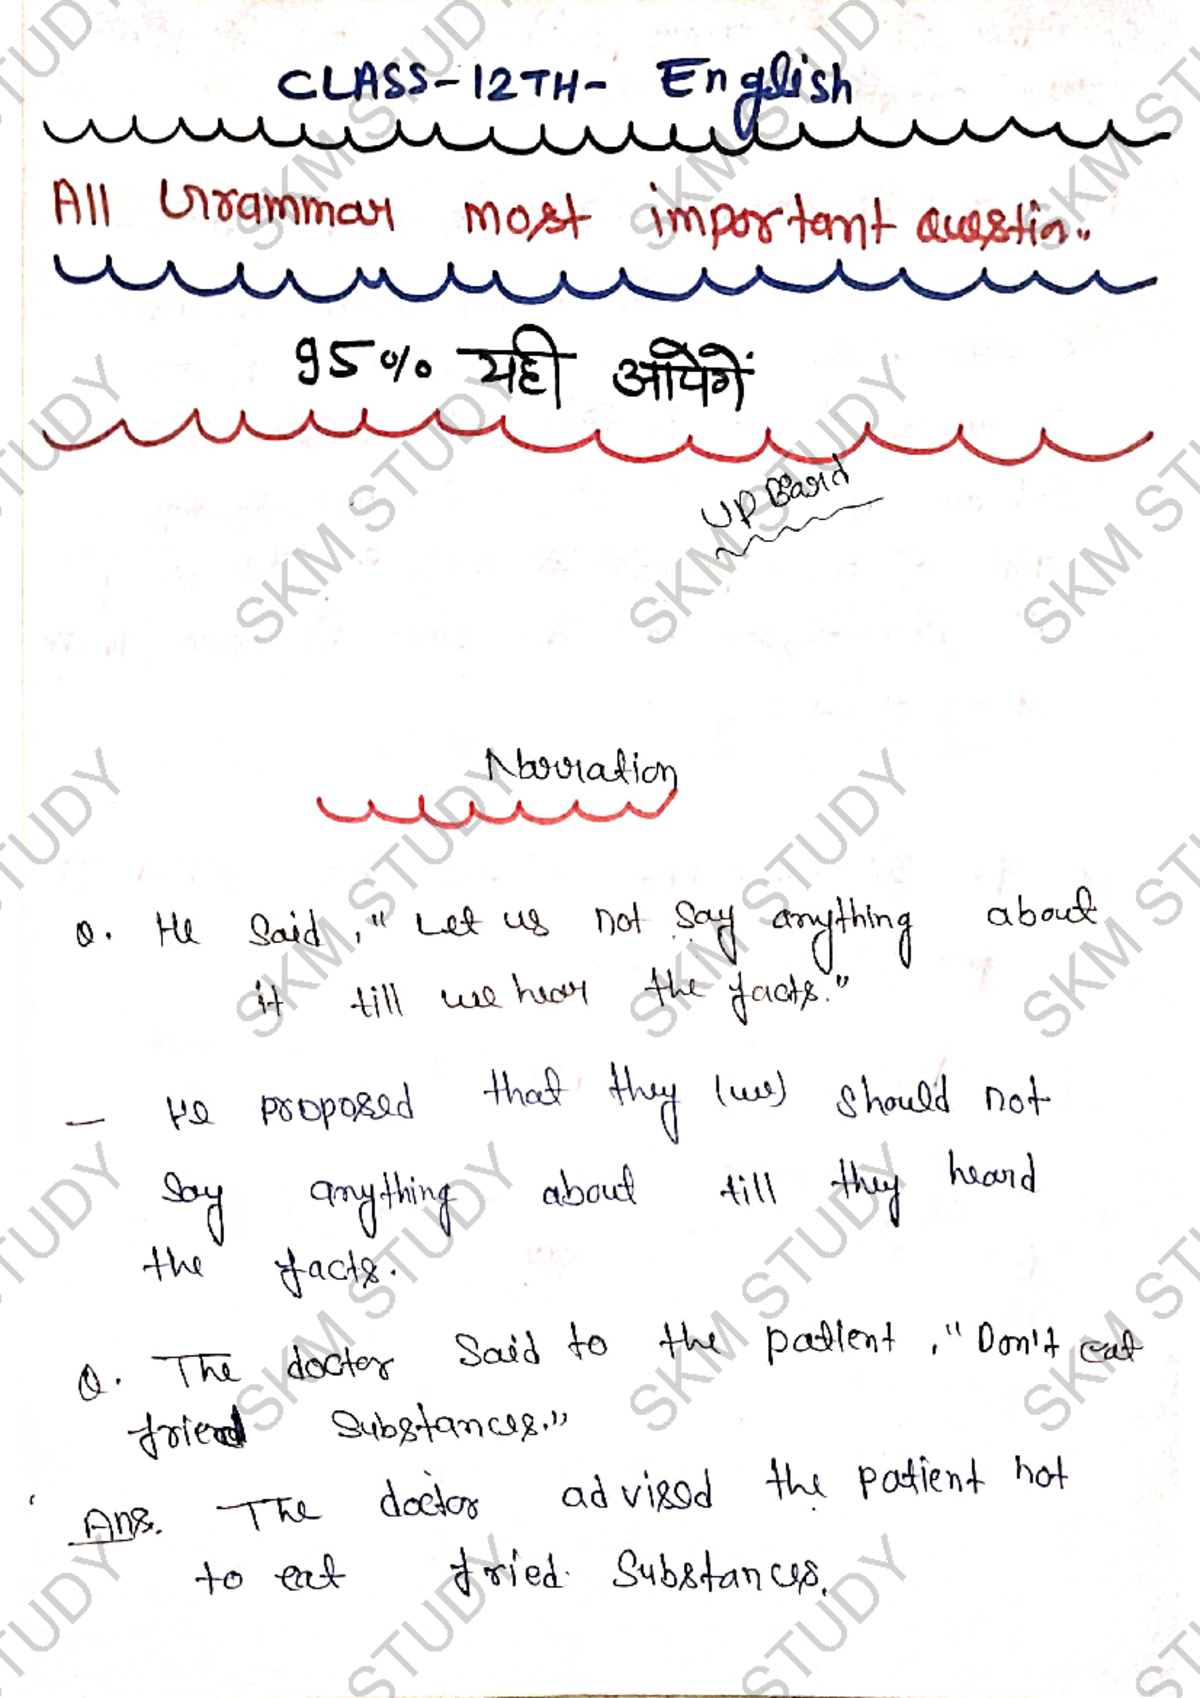 CLASS-12TH- English
All Grammar most important Questin..
95% यही आयेगें
UP Board
Narration
Q. He said, "Let us not say anything about
it till we hear the facts."
— He proposed that they (we) should not
say anything about till they heard
the facts.
Q. The doctor said to the patient, "Don't eat
fried substances."
Ans. The doctor advised the patient not
to eat fried substances.
SKM STUDY